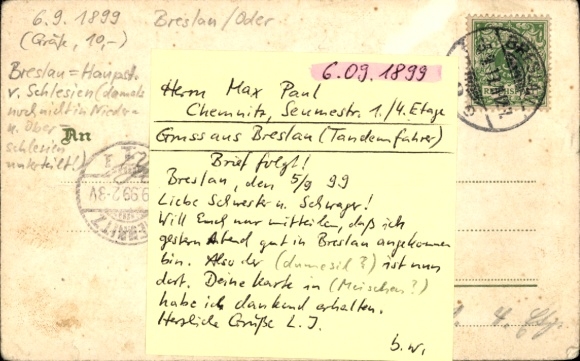 6.9.1899 Breslau/Oder
(Gräfe, 10,-)
Breslau = Hauptst.
v. Schlesien (damals
noch nicht in Nieder=
u. Ober
schlesien
unterteilt!)
An
6.09.1899
Herrn Max Paul
Chemnitz, Seumestr. 1./4. Etage
Gruss aus Breslau (Tandemfahrer)
Brief folgt!
Breslau, den 5/9 99
Liebe Schwester u. Schwager!
Will Euch nur mitteilen, daß ich
gestern Abend gut in Breslau angekommen
bin. Also der (dumesil?) ist nun
dort. Deine Karte in (Meischen?)
habe ich dankend erhalten.
Herzliche Grüße L. J.
b.w.
BRESLAU
REICHSPOST
9.99.2-3V
CHEMNITZ
4. Etg.